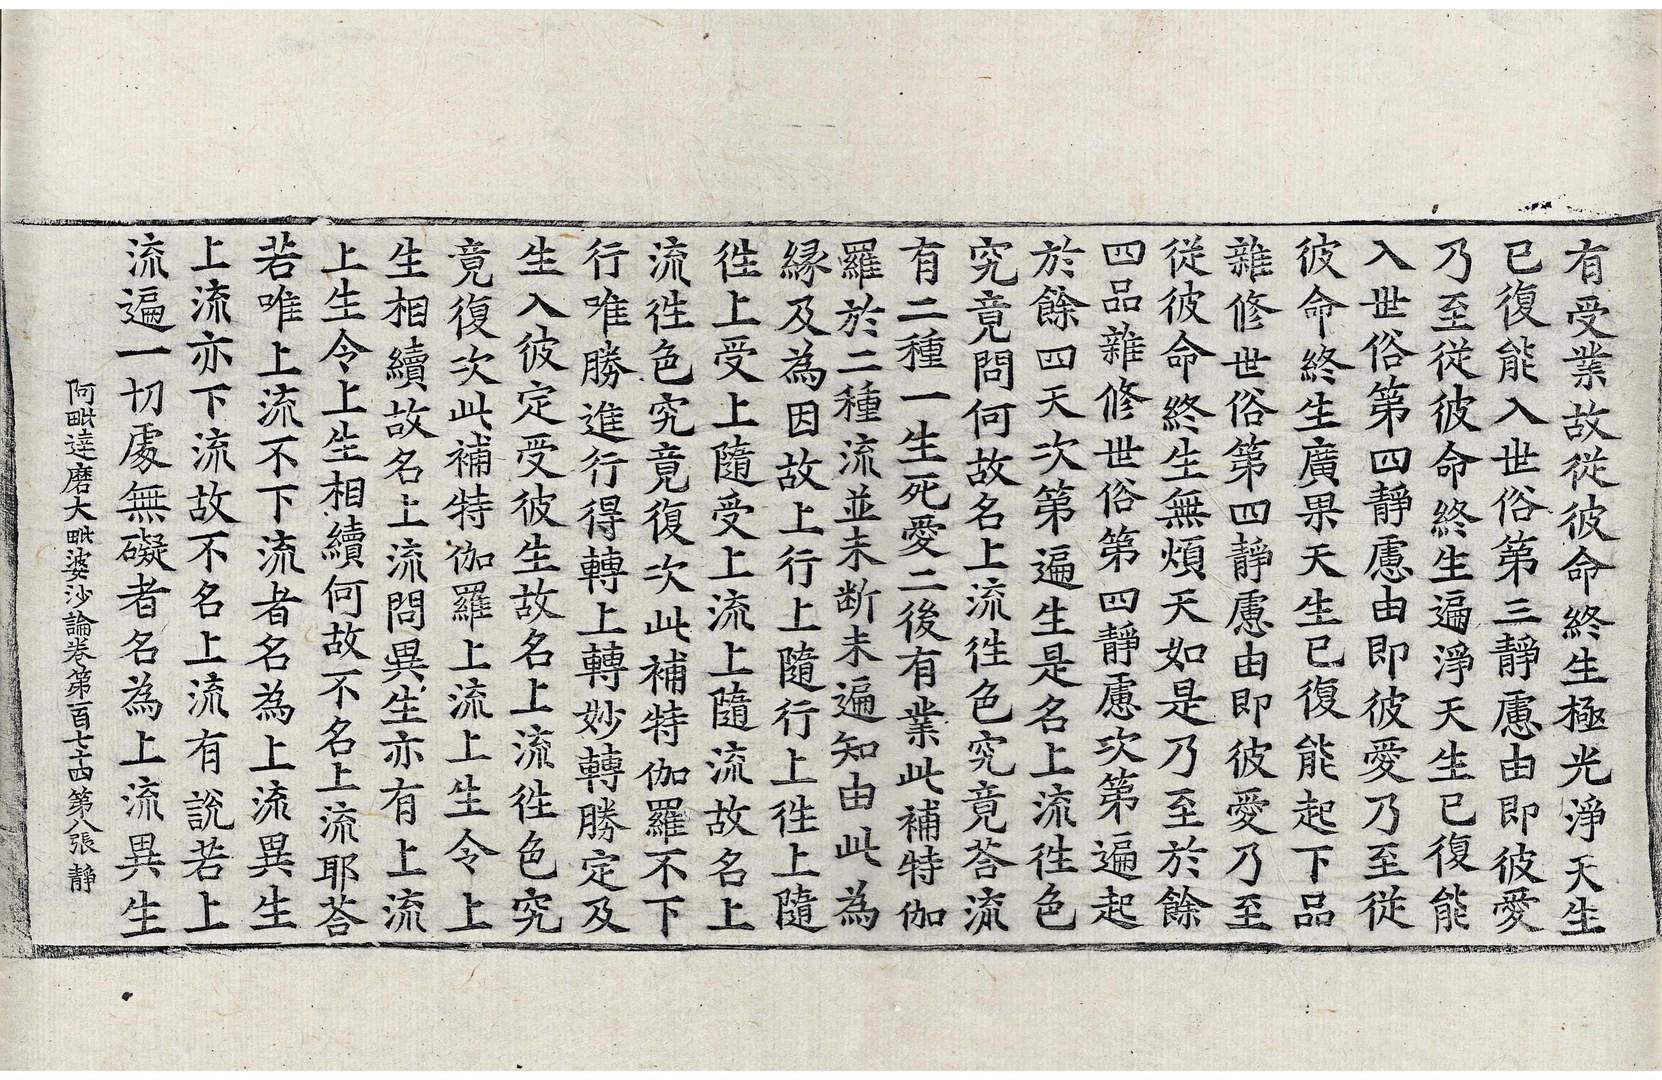 有受業故從彼命終生極光淨天生
已復能入世俗第三靜慮由即彼愛
乃至從彼命終生遍淨天生已復能
入世俗第四靜慮由即彼愛乃至從
彼命終生廣果天生已復能起下品
雜修世俗第四靜慮由即彼愛乃至
從彼命終生無煩天如是乃至於餘
四品雜修世俗第四靜慮次第遍起
於餘四天次第遍生是名上流徃色
究竟問何故名上流徃色究竟荅流
有二種一生死愛二後有業此補特伽
羅於二種流並未断未遍知由此為
縁及為因故上行上隨行上徃上隨
徃上受上隨受上流上隨流故名上
流徃色究竟復次此補特伽羅不下
行唯勝進行得轉上轉妙轉勝定及
生入彼定受彼生故名上流徃色究
竟復次此補特伽羅上流上生令上
生相續故名上流問異生亦有上流
上生令上生相續何故不名上流耶荅
若唯上流不下流者名為上流異生
上流亦下流故不名上流有說若上
流遍一切處無礙者名為上流異生
阿毗達磨大毗婆沙論卷第百七十四第八張 靜